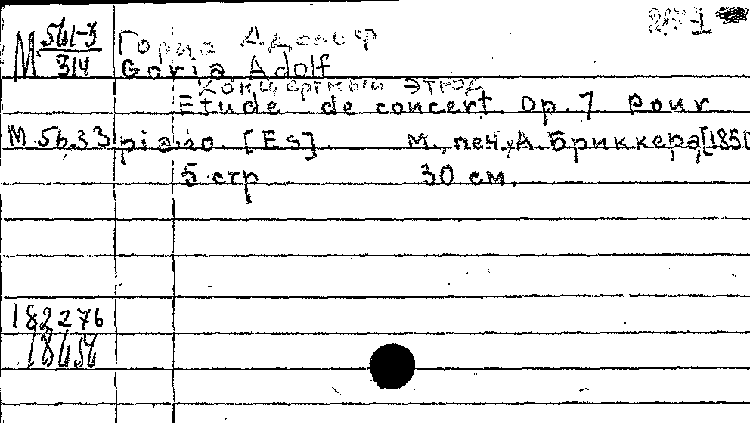 М 561-3/314 Гориа Адольф
Goria Adolf
Концертный этюд
Etude de concert. Op. 7. pour
М 56.33 piano. [Es]. М., печ. А. Бриккера, [185
5 стр 30 см.
182276